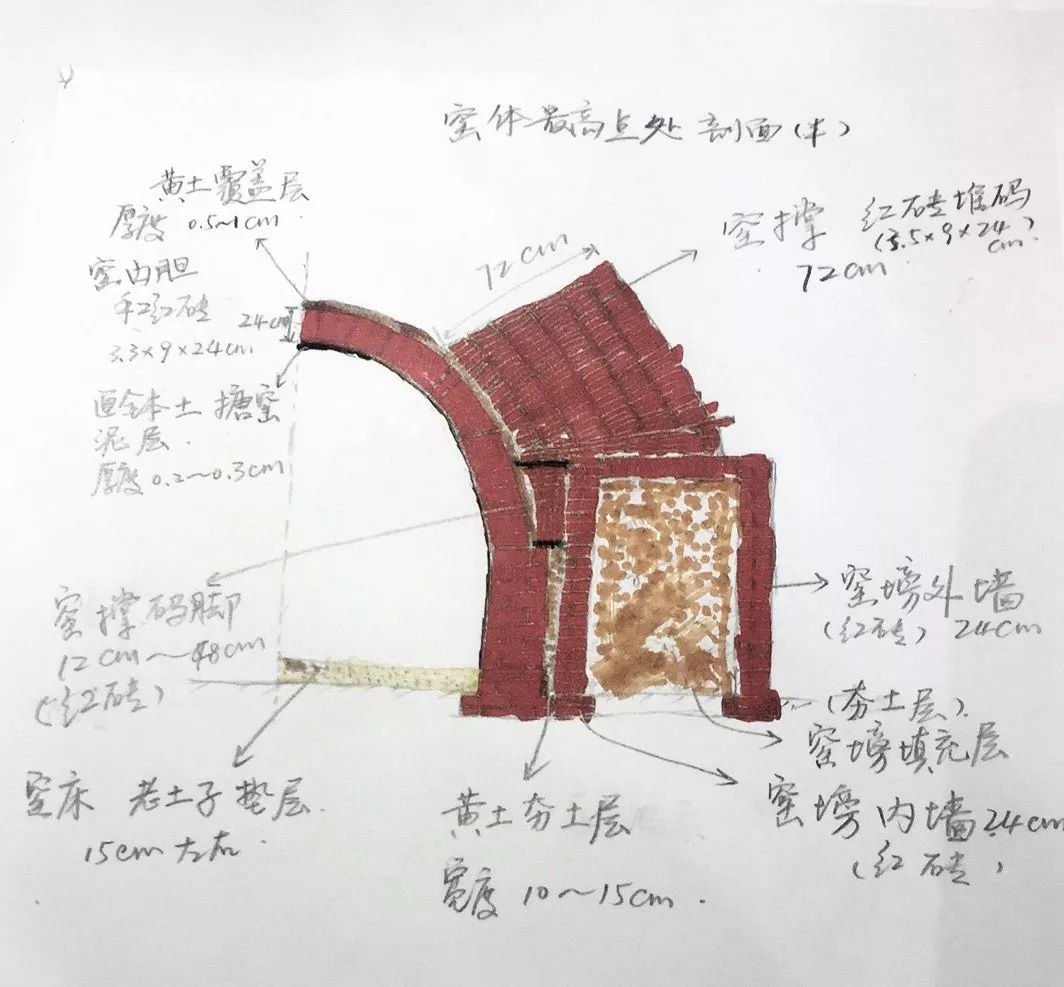 窑体最高点处剖面(半)
黄土覆盖层
厚度 0.5~1cm
窑内胆
手工红砖
3.3×9×24cm
24cm
匣钵本土 搪窑
泥层.
厚度 0.2~0.3cm
72cm
窑撑 红砖堆码
(3.5×9×24
cm)
72cm
窑撑码脚
12cm~48cm
(红砖)
窑床 老土子垫层.
15cm左右.
黄土夯土层
宽度 10~15cm.
窑塝外墙
(红砖) 24cm
(夯土层).
窑塝填充层
窑塝内墙24cm
(红砖)